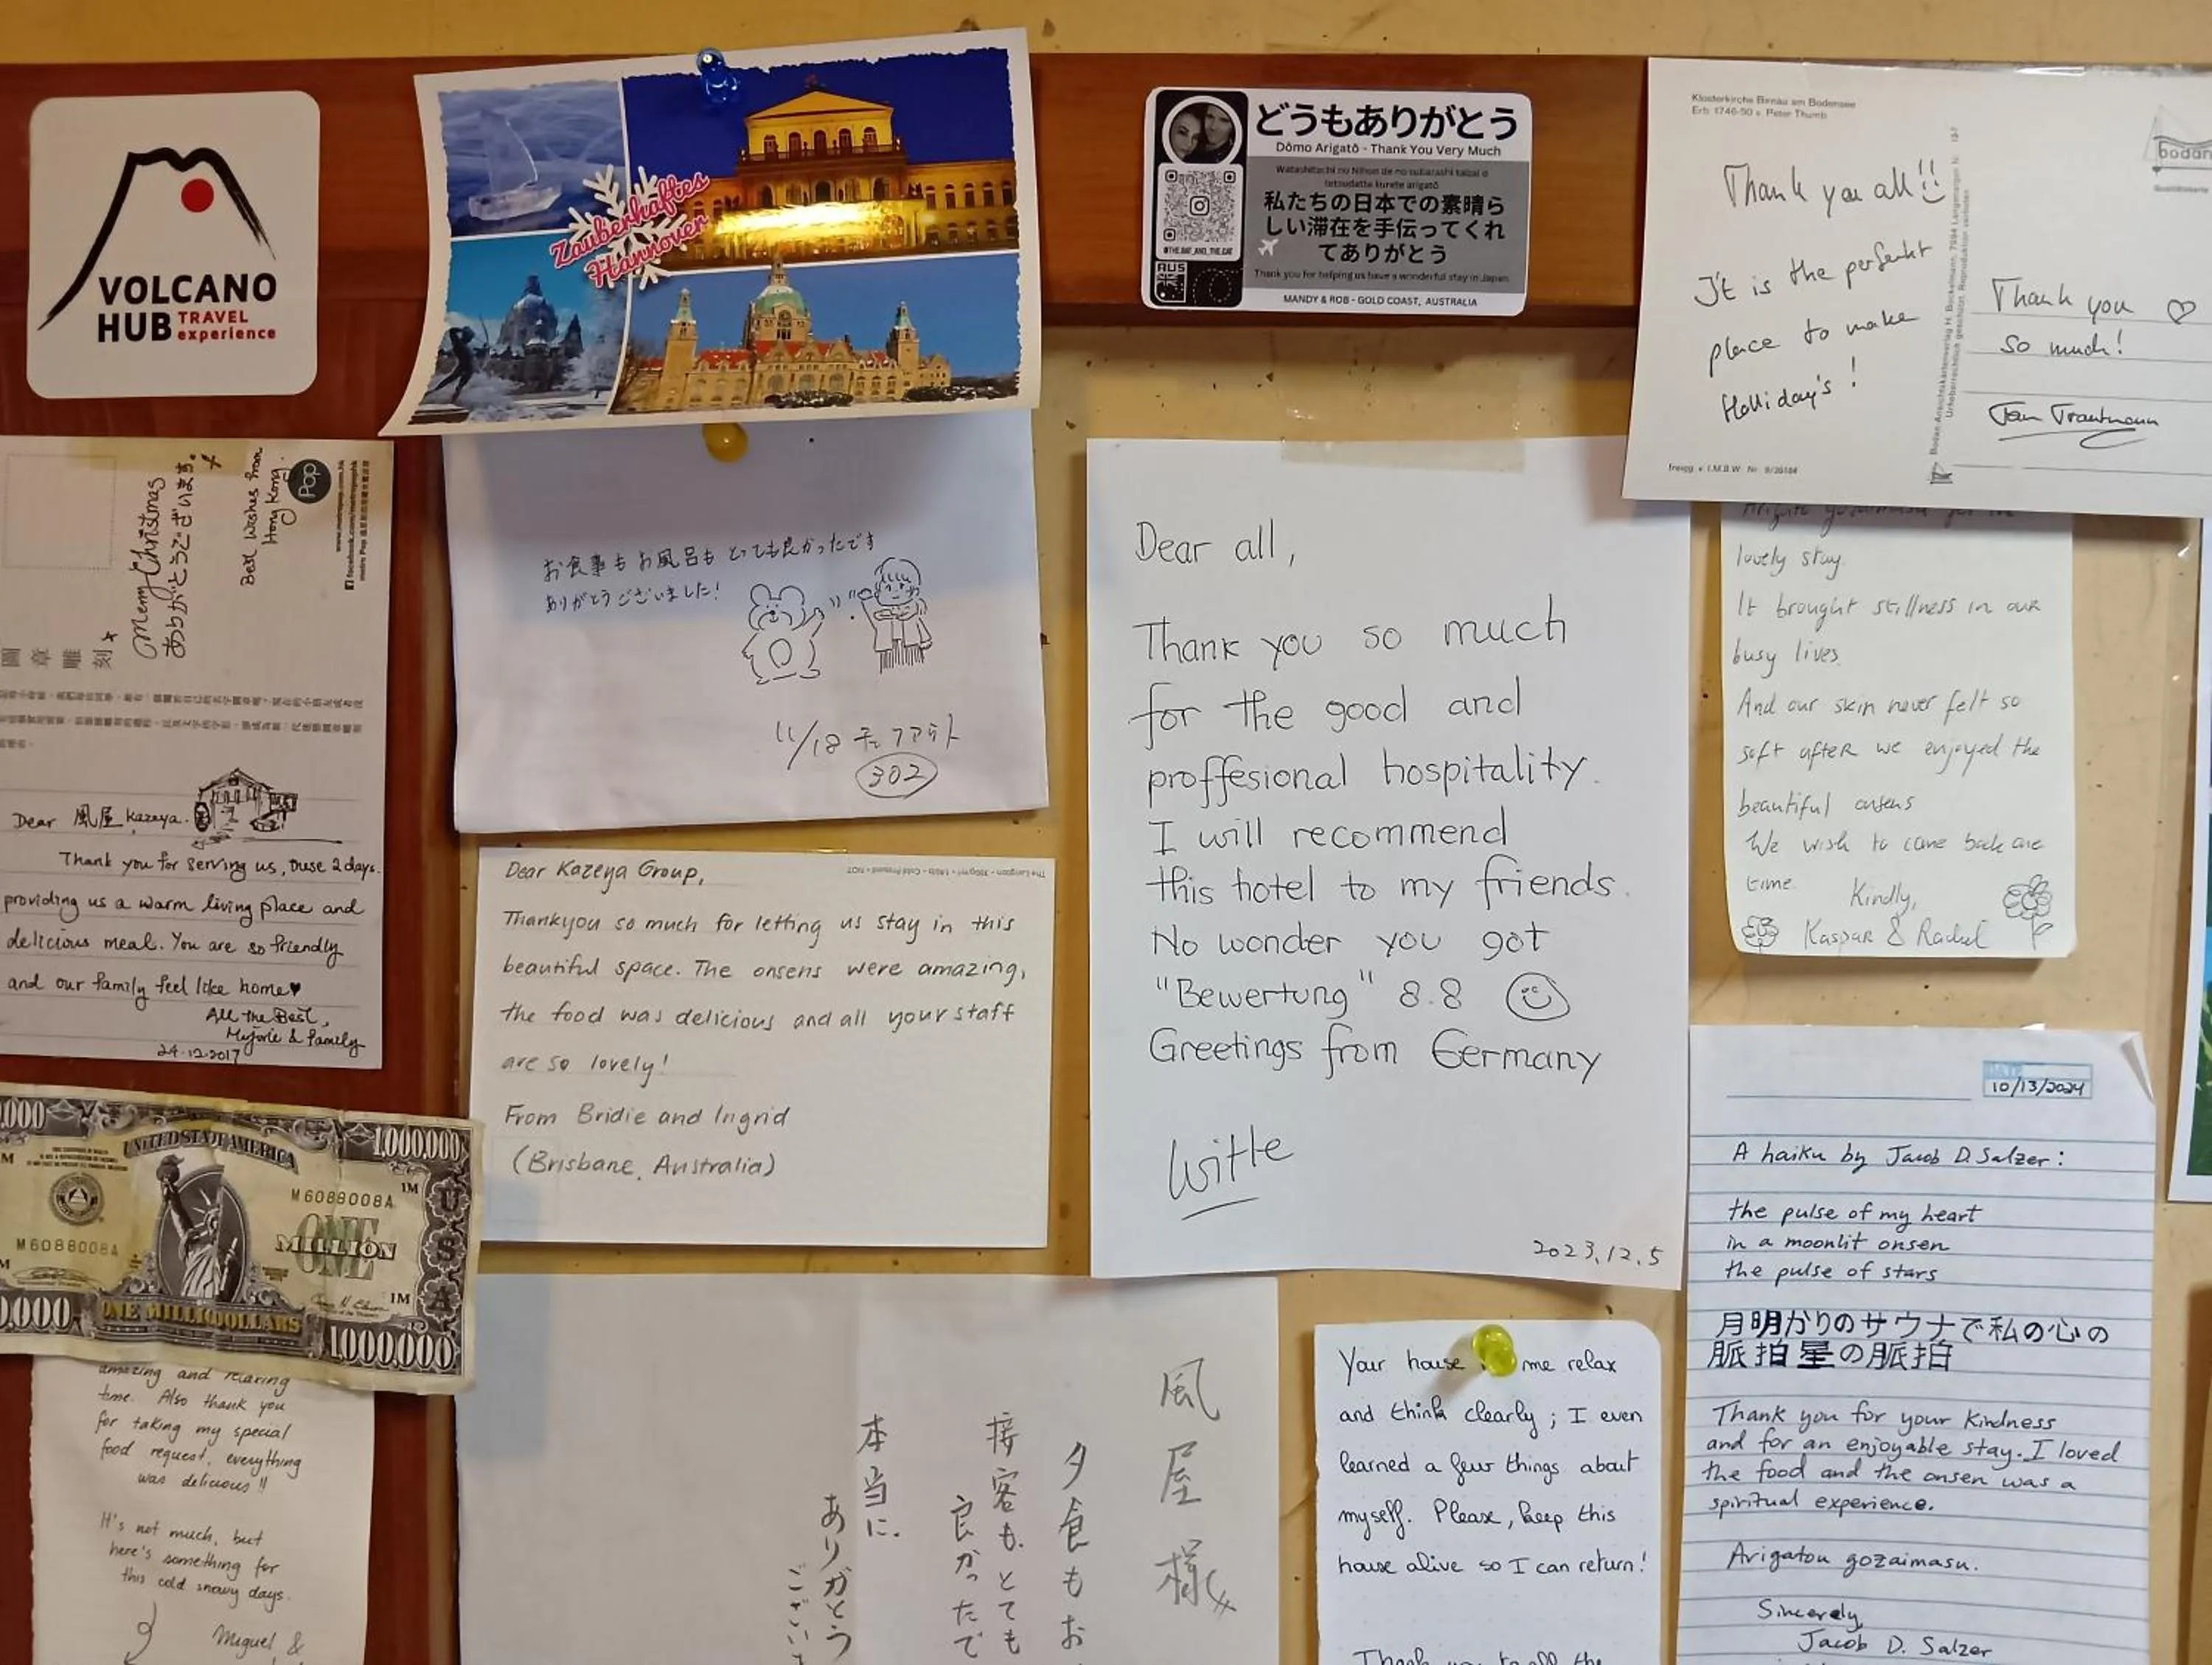 VOLCANO
HUB TRAVEL
experience
Zauberhaftes
Hannover
どうもありがとう
Dōmo Arigatō - Thank You Very Much
Watashitachi no Nihon de no subarashi taizai o
tetsudatte kurete arigatō
私たちの日本での素晴ら
しい滞在を手伝ってくれ
てありがとう
Thank you for helping us have a wonderful stay in Japan
MANDY & ROB - GOLD COAST, AUSTRALIA
@THE_BAT_AND_THE_CAT
AUS
Klosterkirche Birnau am Bodensee
Erb. 1746-50 v. Peter Thumb
Thank you all!!
It is the perfekt
place to make
Holliday's!
Thank you ♡
so much!
Jan Trautmann
bodan
Merry Christmas
ありがとうございます。
Best wishes from
Hong Kong.
Pop
圖章雕刻
Dear 風屋 Kazeya.
Thank you for serving us, these 2 days.
providing us a warm living place and
delicious meal. You are so friendly
and our family feel like home♥
All the Best,
& family
24.12.2017
お食事もお風呂もとっても良かったです
ありがとうございました!
11/18 チェックアウト
302
Dear Kazeya Group,
Thankyou so much for letting us stay in this
beautiful space. The onsens were amazing,
the food was delicious and all your staff
are so lovely!
From Bridie and Ingrid
(Brisbane, Australia)
Dear all,
Thank you so much
for the good and
proffesional hospitality.
I will recommend
this hotel to my friends.
No wonder you got
"Bewertung" 8.8
Greetings from Germany
Witte
2023.12.5
lovely stay.
It brought stillness in our
busy lives.
And our skin never felt so
soft after we enjoyed the
beautiful onsens
We wish to come back one
time.
Kindly,
Kaspar & Rachel
10/13/2024
A haiku by Jacob D. Salzer:
the pulse of my heart
in a moonlit onsen
the pulse of stars
月明かりのサウナで私の心の
脈拍星の脈拍
Thank you for your kindness
and for an enjoyable stay. I loved
the food and the onsen was a
spiritual experience.
Arigatou gozaimasu.
Sincerely,
Jacob D. Salzer
UNITED STATE AMERICA
1,000,000
1M
M6088008A
ONE
MILLION
M6088008A
USA
1M
ONE MILLION DOLLARS
1000000
amazing and relaxing
time. Also thank you
for taking my special
food request, everything
was delicious!!
It's not much, but
here's something for
this cold snowy days.
Miguel &
風屋様
夕食もお
接客も、とても
良かったで
本当に、
ありがとう
ござい
Your house me relax
and think clearly; I even
learned a few things about
myself. Please, keep this
house alive so I can return!
Thank you to all the